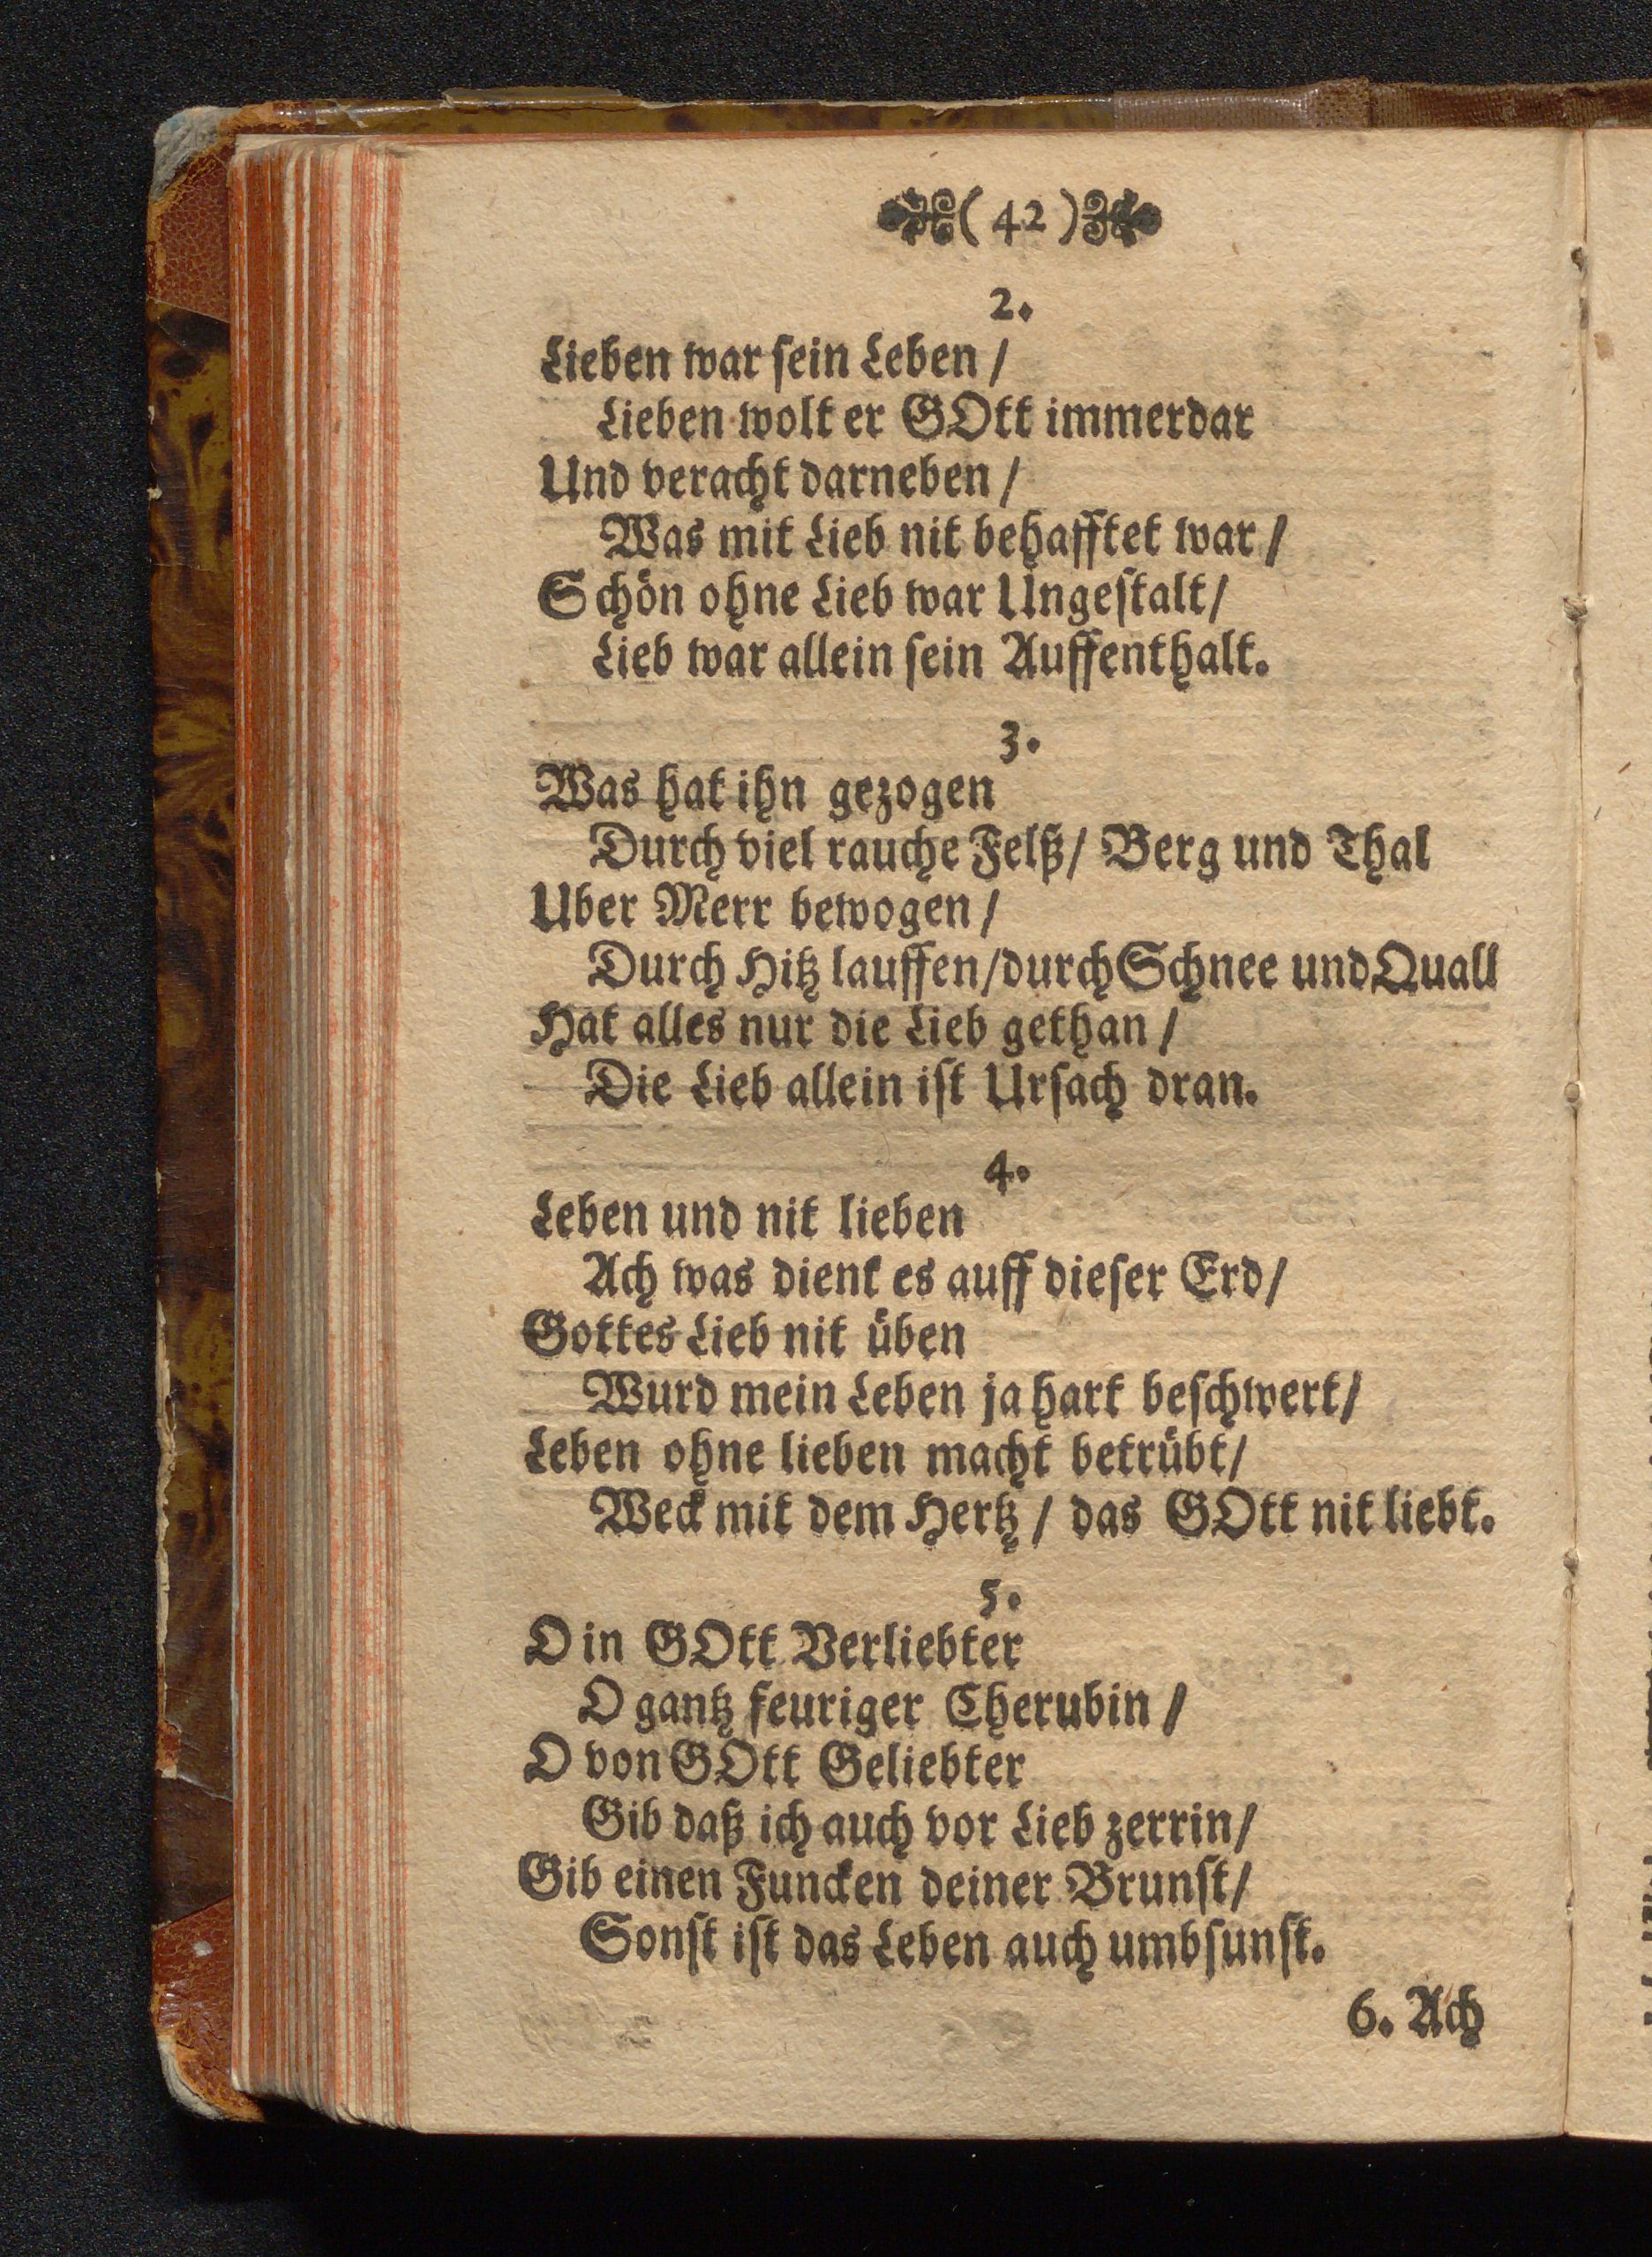 ( 42 )
2.
Lieben war sein Leben /
Lieben wolt er GOtt immerdar
Und veracht darneben /
Was mit Lieb nit behafftet war /
Schön ohne Lieb war Ungestalt /
Lieb war allein sein Auffenthalt.
3.
Was hat ihn gezogen
Durch viel rauche Felß / Berg und Thal
Uber Merr bewogen /
Durch Hitz lauffen / durch Schnee und Quall
Hat alles nur die Lieb gethan /
Die Lieb allein ist Ursach dran.
4.
Leben und nit lieben
Ach was dient es auff dieser Erd /
Gottes Lieb nit üben
Wurd mein Leben ja hart beschwert /
Leben ohne lieben macht betrübt /
Weck mit dem Hertz / das GOtt nit liebt.
5.
O in GOtt Verliebter
O gantz feuriger Cherubin /
O von GOtt Geliebter
Gib daß ich auch vor Lieb zerrin /
Gib einen Funcken deiner Brunst /
Sonst ist das Leben auch umbsunst.
6. Ach